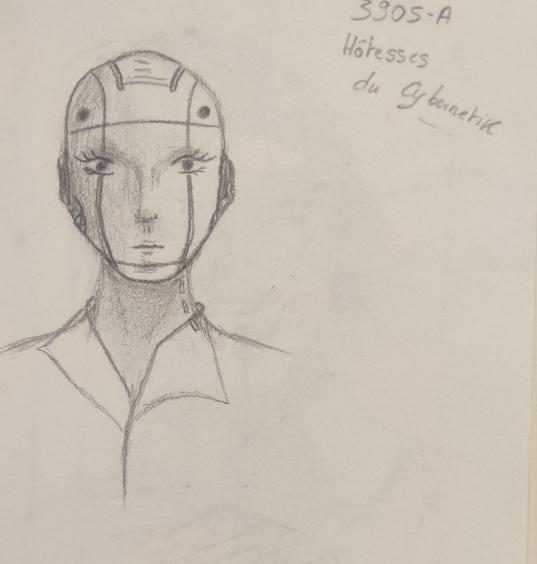 3905-A
Hôtesses
du Cybernetik